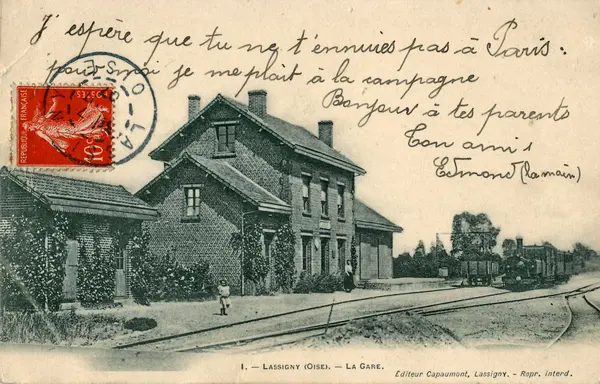 J'espère que tu ne t'ennuies pas à Paris.
pour moi je me plait à la campagne
Bonjour à tes parents
Ton ami
Edmond (Lamain)
RÉPUBLIQUE FRANÇAISE
POSTES
10c
LASSIGNY
OISE
1. — LASSIGNY (OISE). — LA GARE.
Éditeur Capaumont, Lassigny. - Repr. interd.